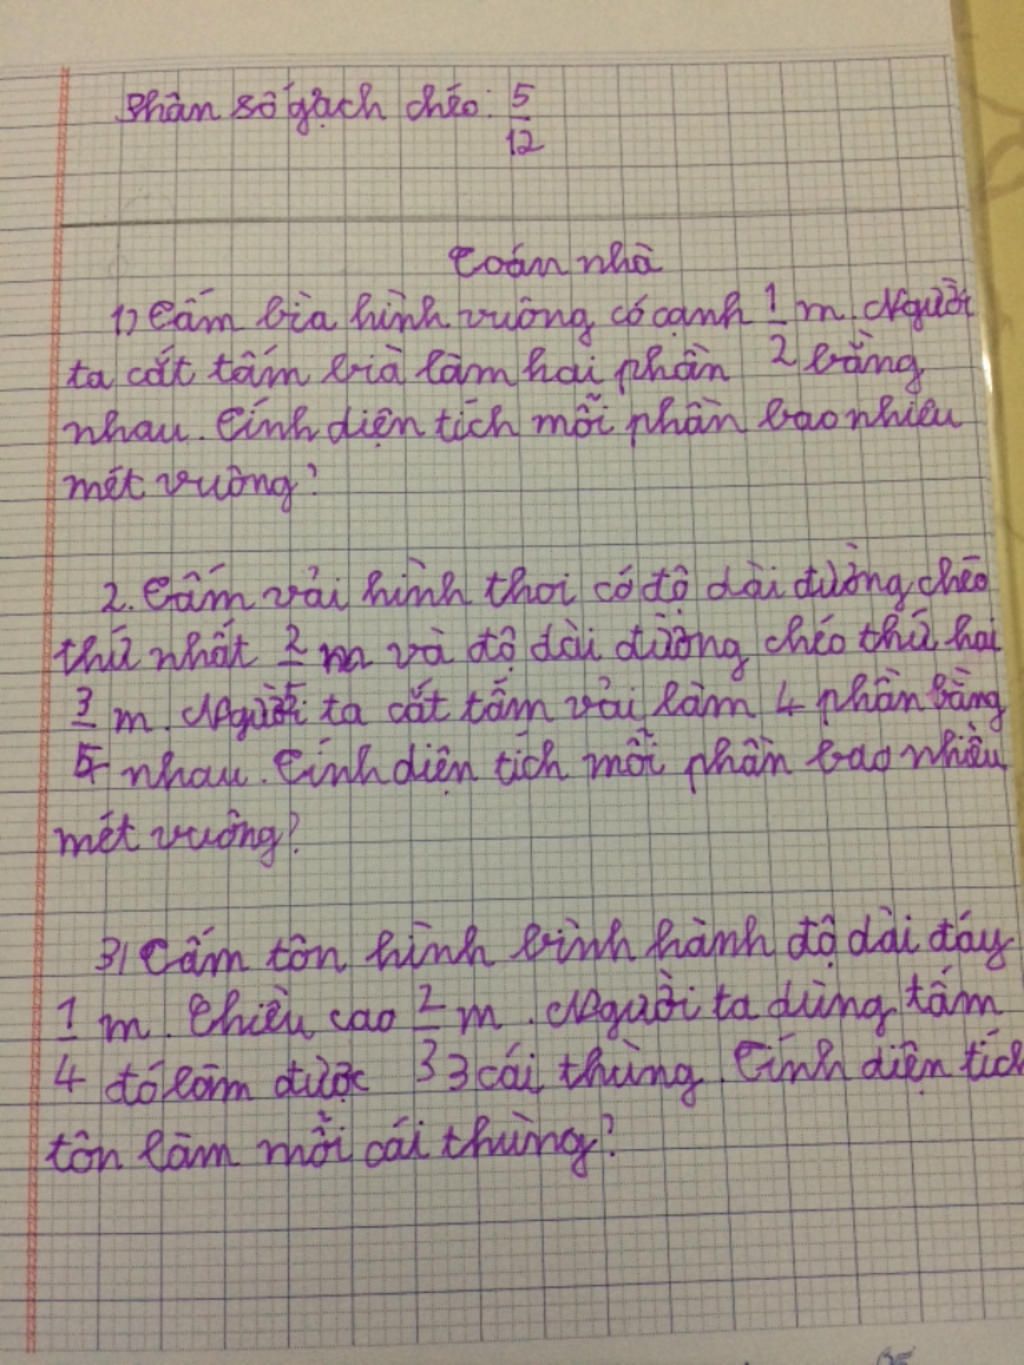 Phân số gạch chéo: 5/12
Toán nhà
1) Tấm bìa hình vuông có cạnh 1/2 m. Người
ta cắt tấm bìa làm hai phần bằng
nhau. Tính diện tích mỗi phần bao nhiêu
mét vuông?
2. Tấm vải hình thoi có độ dài đường chéo
thứ nhất 2/5 m và độ dài đường chéo thứ hai
3/5 m. Người ta cắt tấm vải làm 4 phần bằng
nhau. Tính diện tích mỗi phần bao nhiêu
mét vuông?
3) Tấm tôn hình bình hành độ dài đáy
1/4 m. Chiều cao 2/3 m. Người ta dùng tấm
đó làm được 3 cái thùng. Tính diện tích
tôn làm mỗi cái thùng?